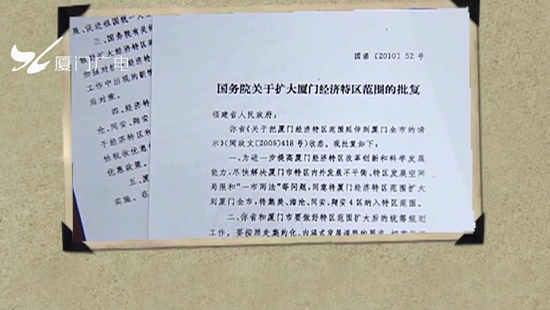 厦门广电
展、促进祖国统一大
三、国务院有关
四、经济特
沧、同安、翔安
优惠政策。
五、厦
实施。在
国函〔2010〕52号
国务院关于扩大厦门经济特区范围的批复
福建省人民政府：
你省《关于把厦门经济特区范围延伸到厦门全市的请
示》(闽政文〔2009〕418号)收悉。现批复如下：
一、为进一步提高厦门经济特区改革创新和科学发展
能力，尽快解决厦门市特区内外发展不平衡、特区发展空间
局限和“一市两法”等问题，同意将厦门经济特区范围扩大
到厦门全市，将集美、海沧、同安、翔安4区纳入特区范围。
二、你省和厦门市要做好特区范围扩大后的统筹规划
工作。要按照走集约化、内涵式发展道路的要求，